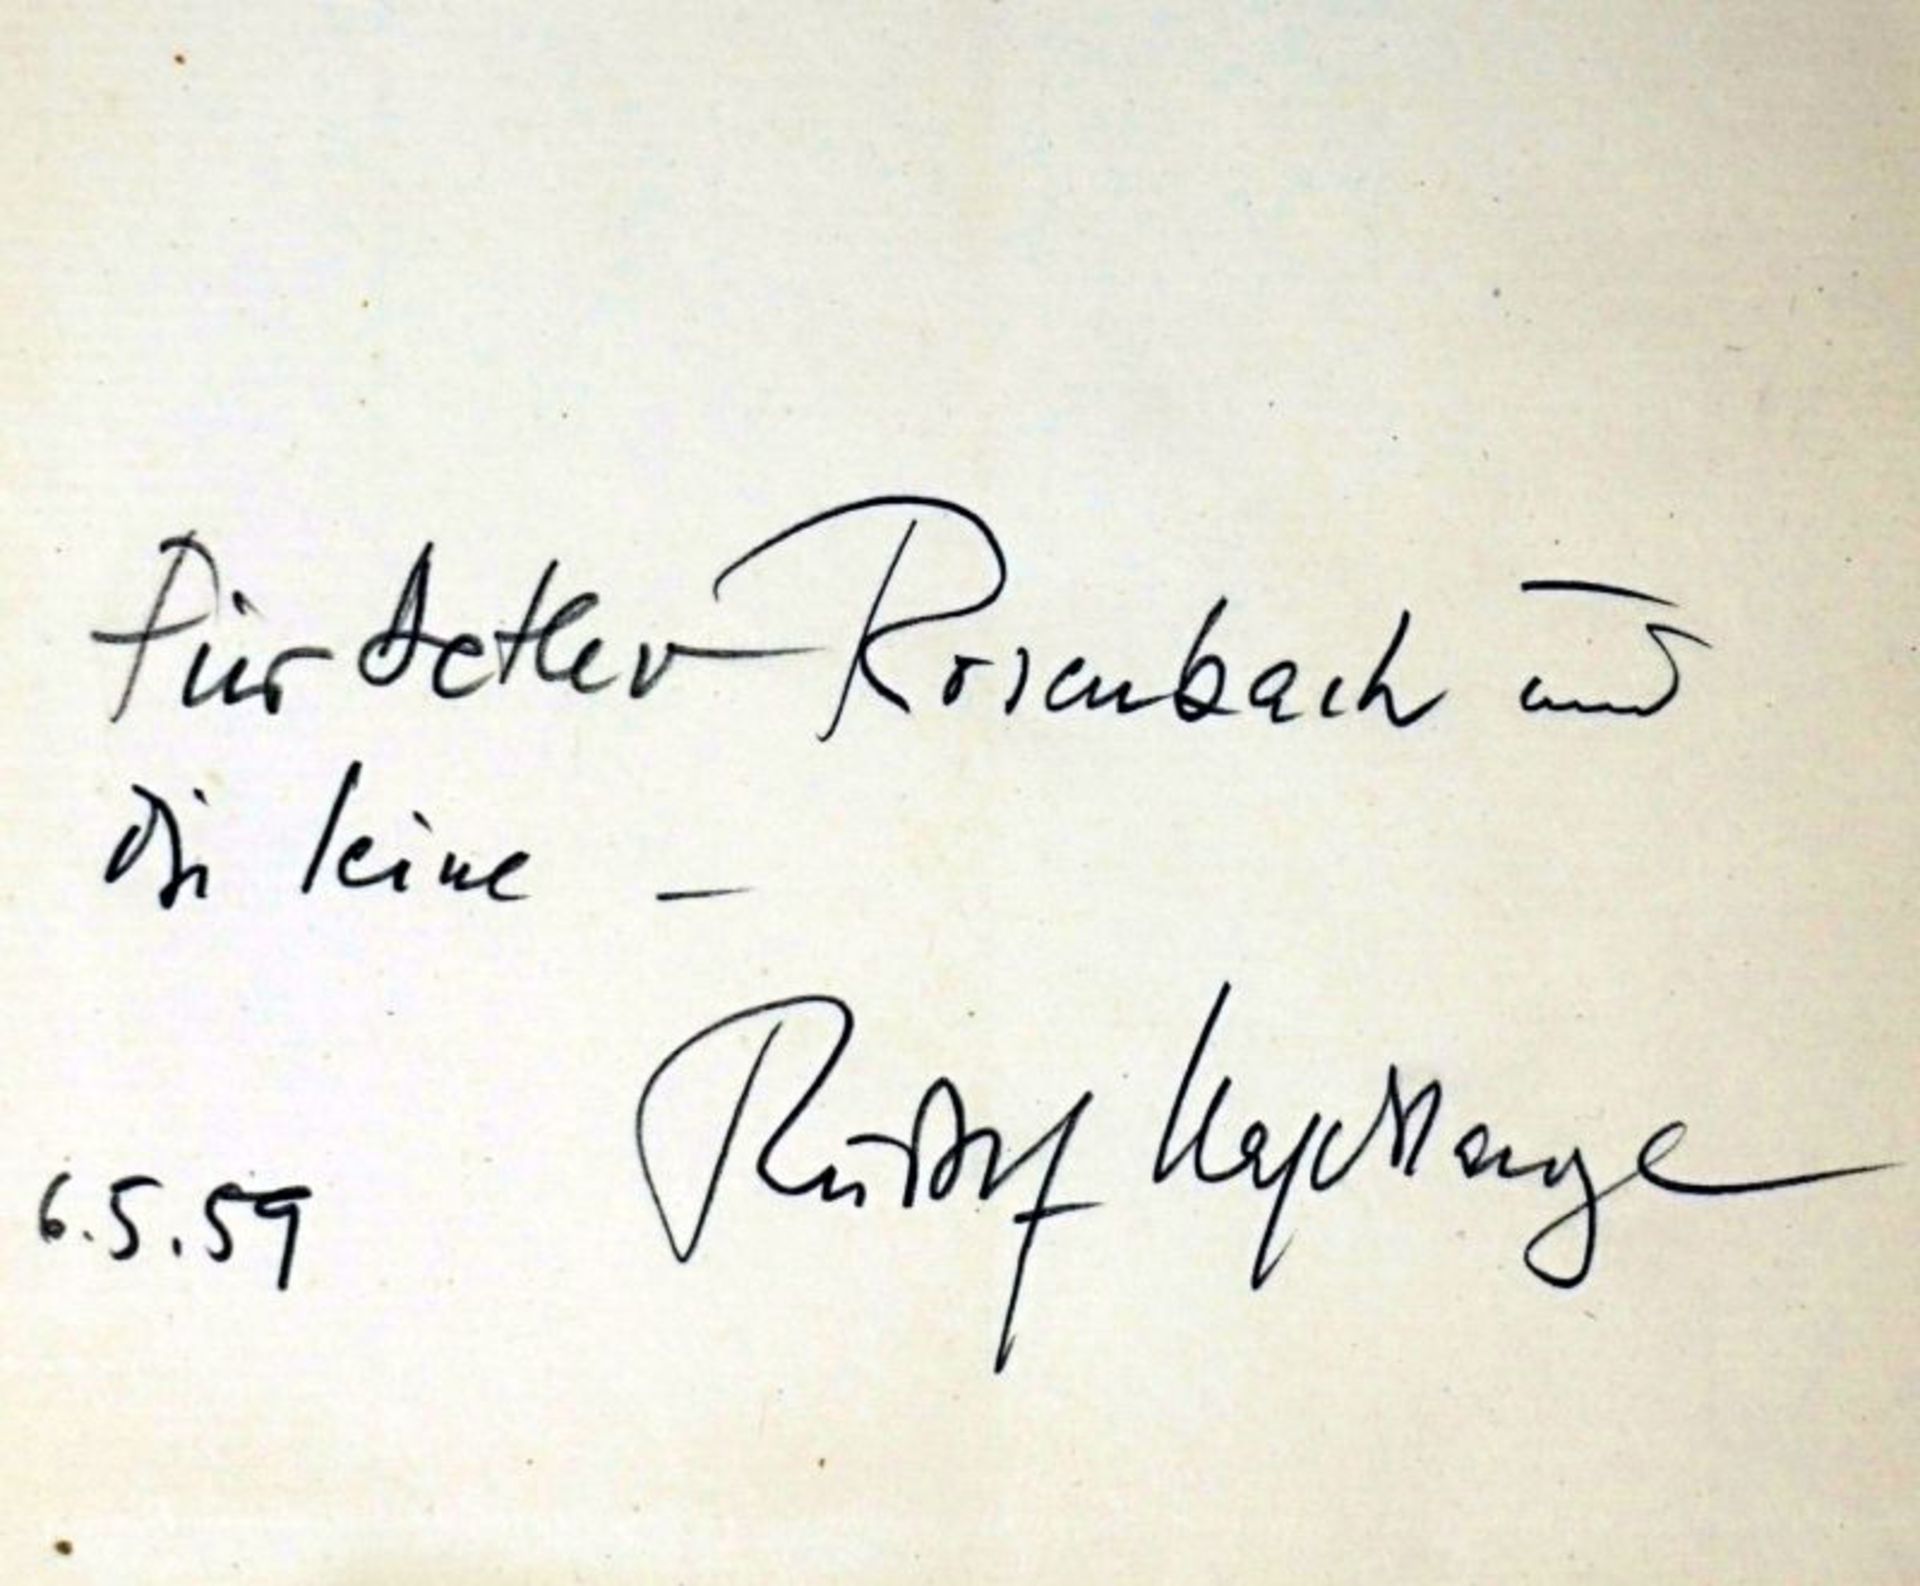 Für Detlev Rosenbach und
die seine –
Rudolf Hagelstange
6.5.59